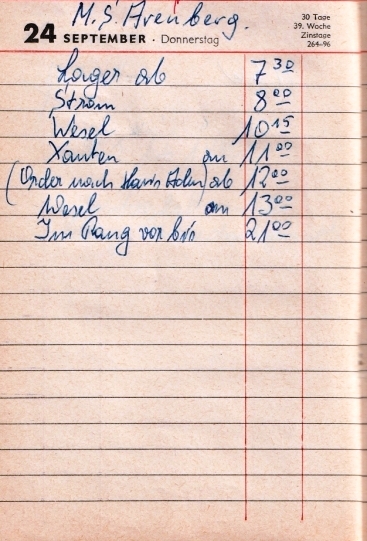 M.S. Arenberg.
24 SEPTEMBER · Donnerstag
30 Tage
39. Woche
Zinstage
264-96
Lager ab 7 30
Strom 8 00
Wesel 10 15
Xanten an 11 00
(Order nach Haus Aden) ab 12 00
Wesel an 13 00
Im Rang vor bis 21 00